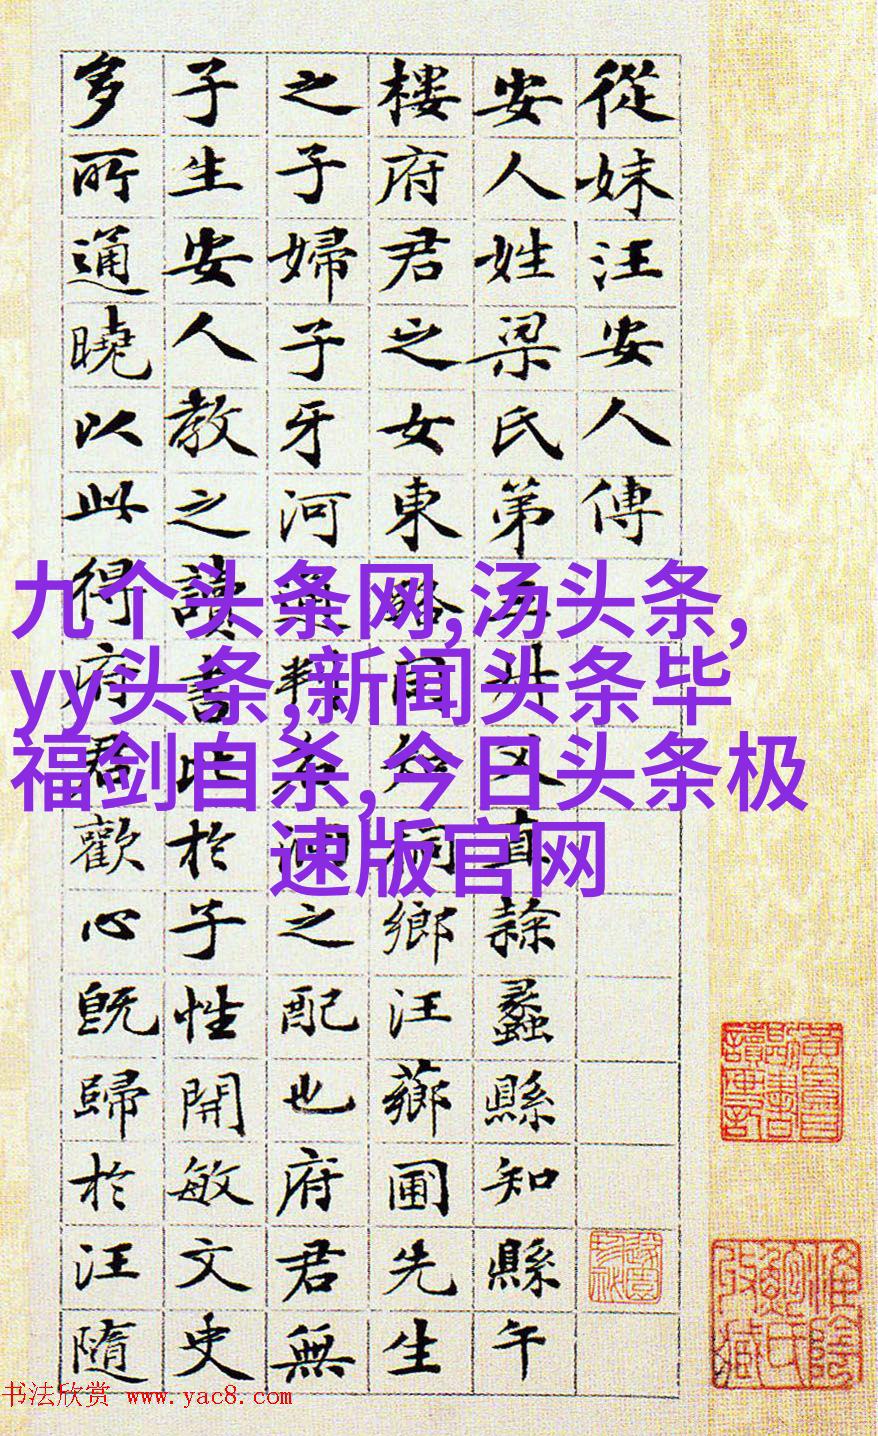 從妹汪安人傳
安人姓梁氏弟又直隸蠡縣知縣午
樓府君之女東路同知鄉汪薌圃先生
之子婦子牙河通判之配也府君無
子生安人教之讀書比於子性開敏文史
多所通曉以此得府君歡心既歸於汪隨
九个头条网,汤头条,
yy头条,新闻头条毕
福剑自杀,今日头条极
速版官网
书法欣赏 www.yac8.com